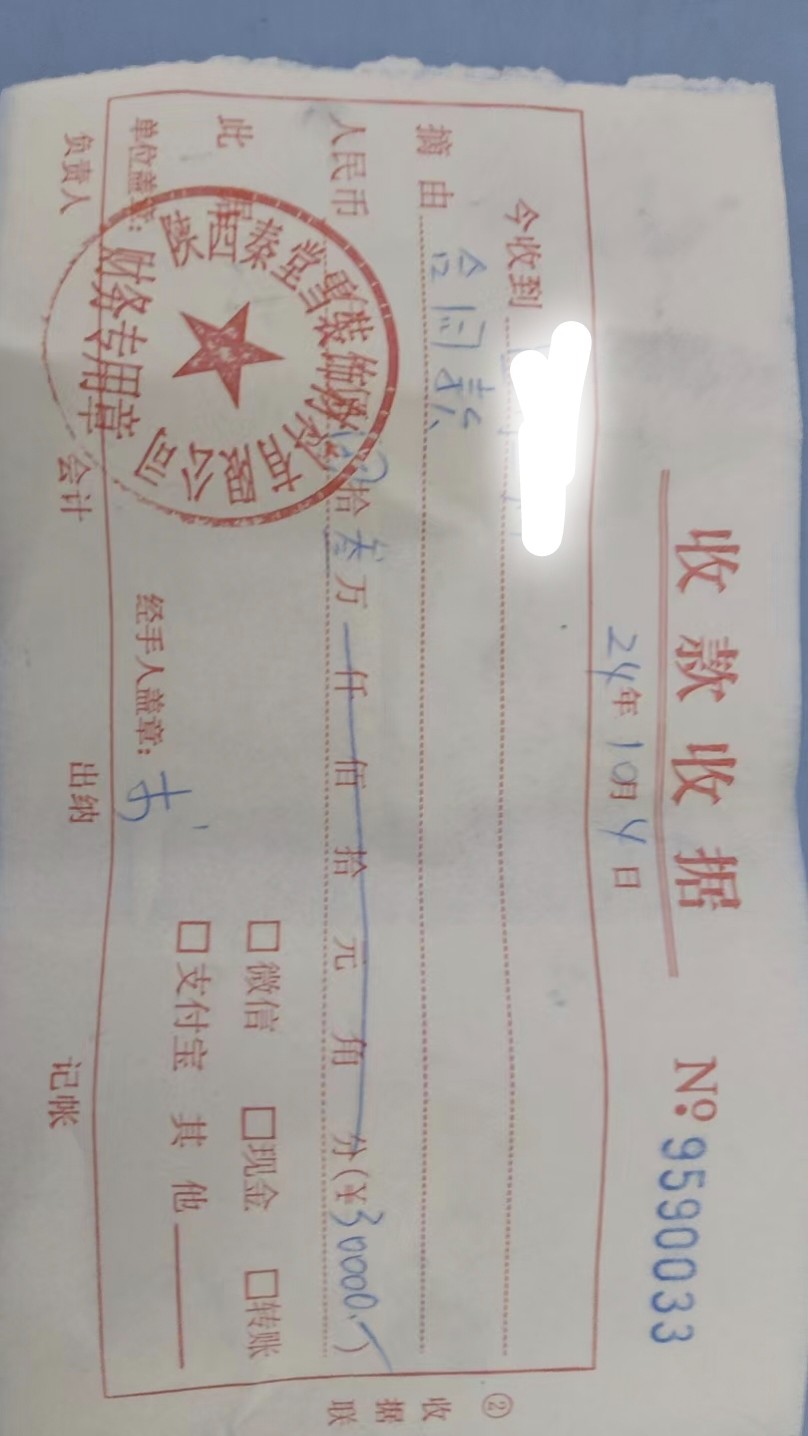 收款收据
№ 9590033
24年10月4日
今收到
摘由 合同款
人民币 拾叁万仟佰拾元角分(¥30000.)
此
□微信 □现金 □转账
□支付宝 其他
单位盖章: 经手人盖章:
负责人 会计 出纳 记帐
②
收据联
陕西秦堂雪装饰
有限公司
财务专用章